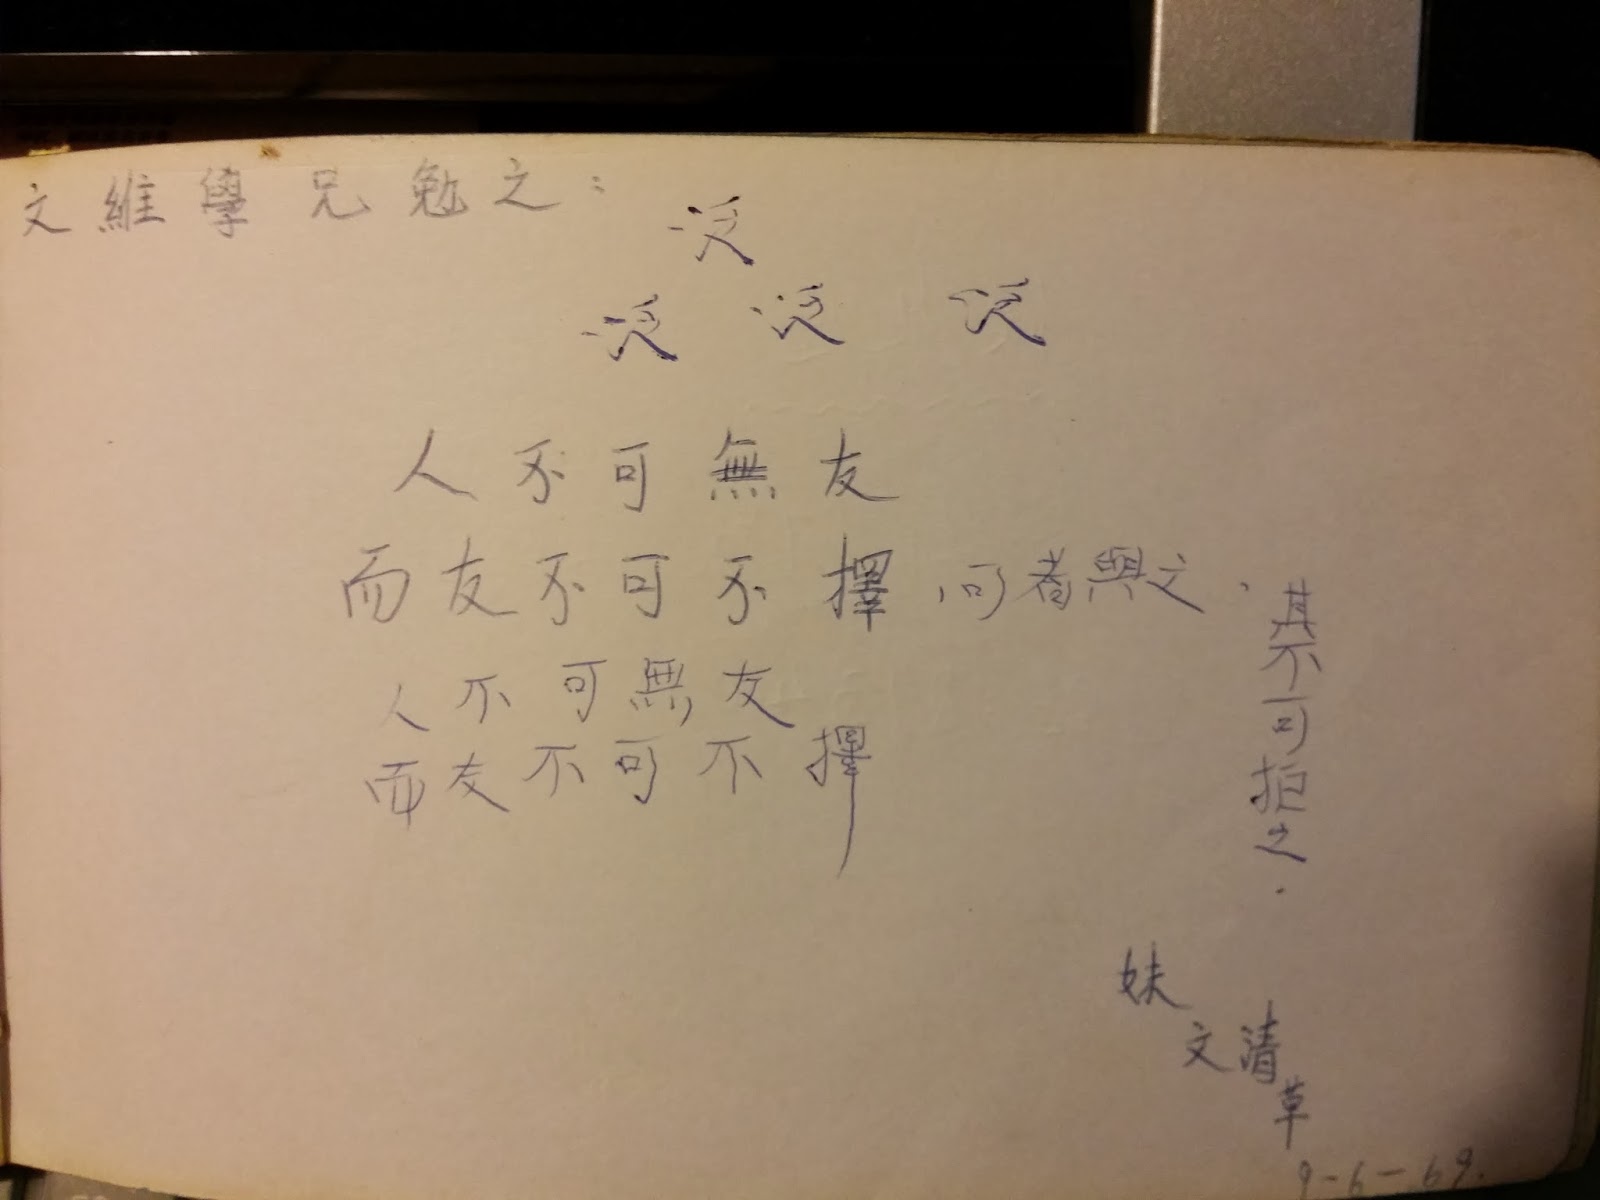 文維學兄勉之：
泛
泛 泛 泛
人不可無友
而友不可不擇，可者與之．
其不可拒之．
人不可無友
而友不可不擇
妹
文清
草
9-6-69.